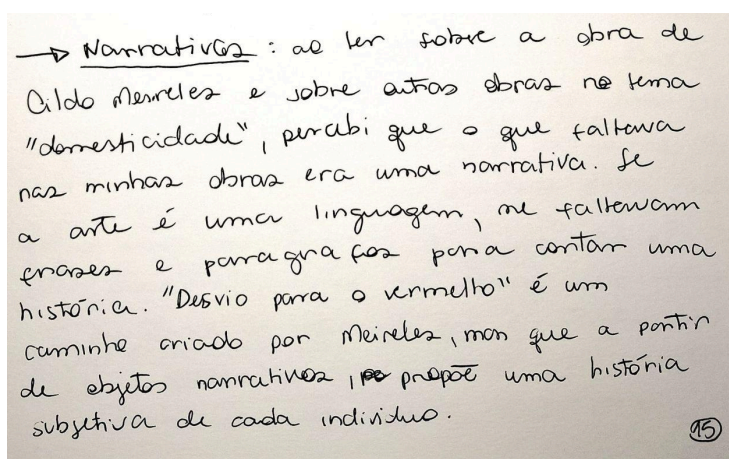 → Narrativas: ao ler sobre a obra de
Cildo Meireles e sobre outras obras no tema
"domesticidade", percebi que o que faltava
nas minhas obras era uma narrativa. Se
a arte é uma linguagem, me faltavam
frases e paragrafos para contar uma
história. "Desvio para o vermelho" é um
caminho criado por Meireles, mas que a partir
de objetos narrativos, propõe uma história
subjetiva de cada individuo.
15